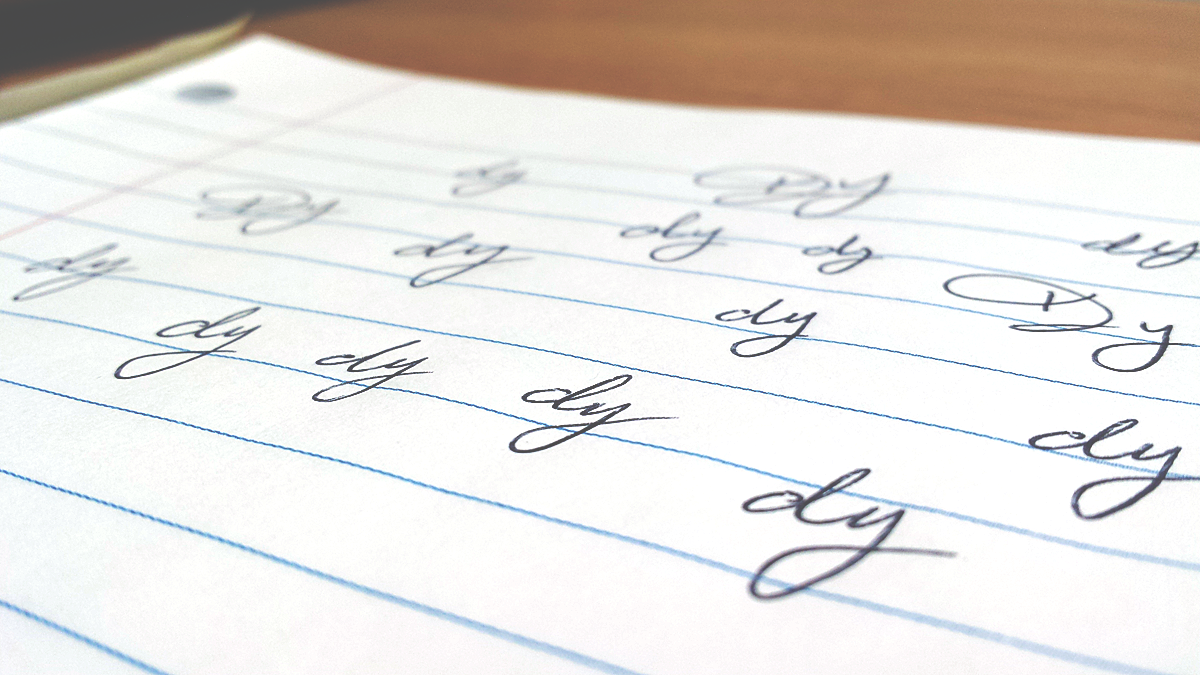 dy Dy
Dy dy dy dy dy
dy dy Dy
dy dy dy dy
dy dy